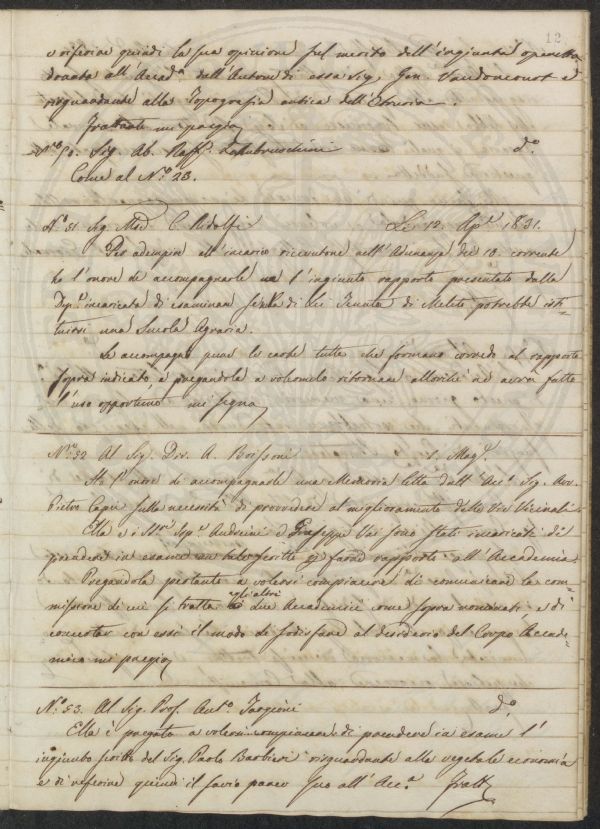 12
e riferire quindi la sua opinione sul merito dell'ingiunta operetta
donata all'Accad.a dall'Autore di essa Sig. Gen. Vaudoncourt e
risguardante alla Topografia antica dell'Etruria.
Frattanto mi pregio
N.ro 50. Sig. Ab. Raff.e Lambruschini d.o
Come al N.o 23.
N.o 51 Sig. Mse C. Ridolfi Li 12. Ap.e 1831.
Per adempire all'incarico ricevutone nell'Adunanza del 10 corrente
ho l'onore di accompagnarle l'ingiunto rapporto presentato dalla
Dep.e incaricata di esaminare se nella di lei Tenuta di Meleto potrebbe isti-
tuirsi una Scuola Agraria.
Le accompagno pure le carte tutte che formano corredo al rapporto
sopra indicato, e pregandola a volermelo ritornare allorché ne avrà fatto
l'uso opportuno mi segno
N.ro 52 Al Sig. Dre. A. 1. Mag.o
Ho l'onore di accompagnarle una Memoria letta dall'Acc.o Sig. Avv.
Pietro Capei sulla necessità di provvedere al miglioramento delle Vie Vicinali.
Ella e i Sig.ri Andreini e Giuseppe Vai sono stati incaricati di
prendere in esame scritto e farne rapporto all'Accademia.
Pregandola pertanto a volersi compiacere di comunicare la com-
missione di cui si tratta agli altri due Accademici come sopra nominati, e di
concertar con essi il modo di sodisfare al desiderio del Corpo Accade-
mico mi pregio
N.o 53. Al Sig. Prof. Ant.o Targioni d.o
Ella è pregata a volersi compiacere di prendere in esame l'
ingiunto scritto del Sig. Paolo Barbieri risguardante alla vegetale economia
e di riferire quindi il savio parere suo all'Acc.a Fratt.